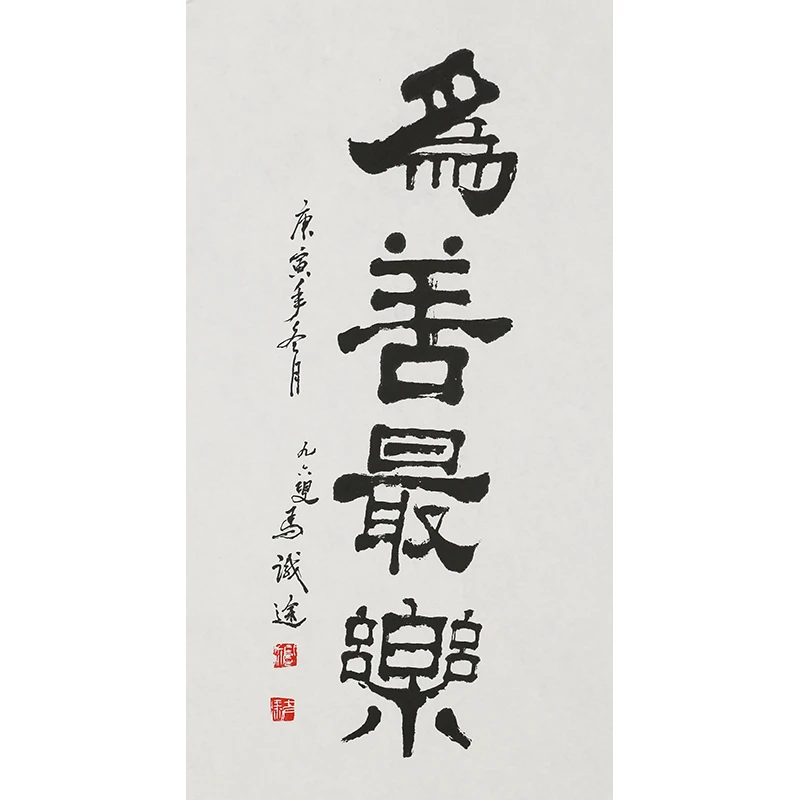 為善最樂
庚寅年冬月
九六叟馬識途